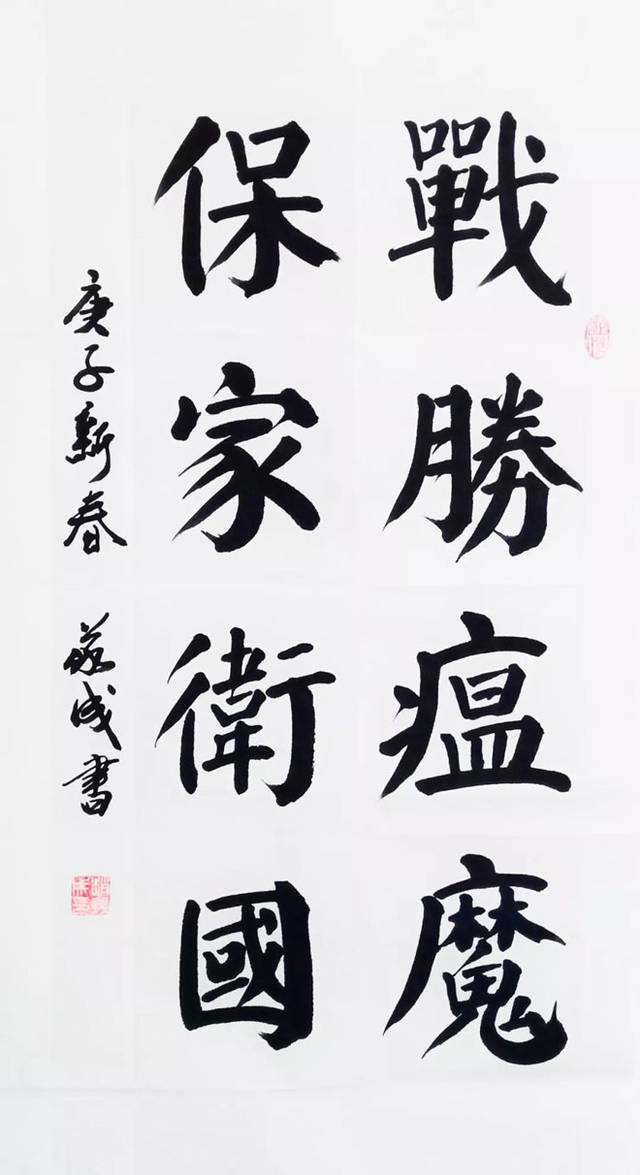 戰勝瘟魔
保家衛國
庚子新春
成書